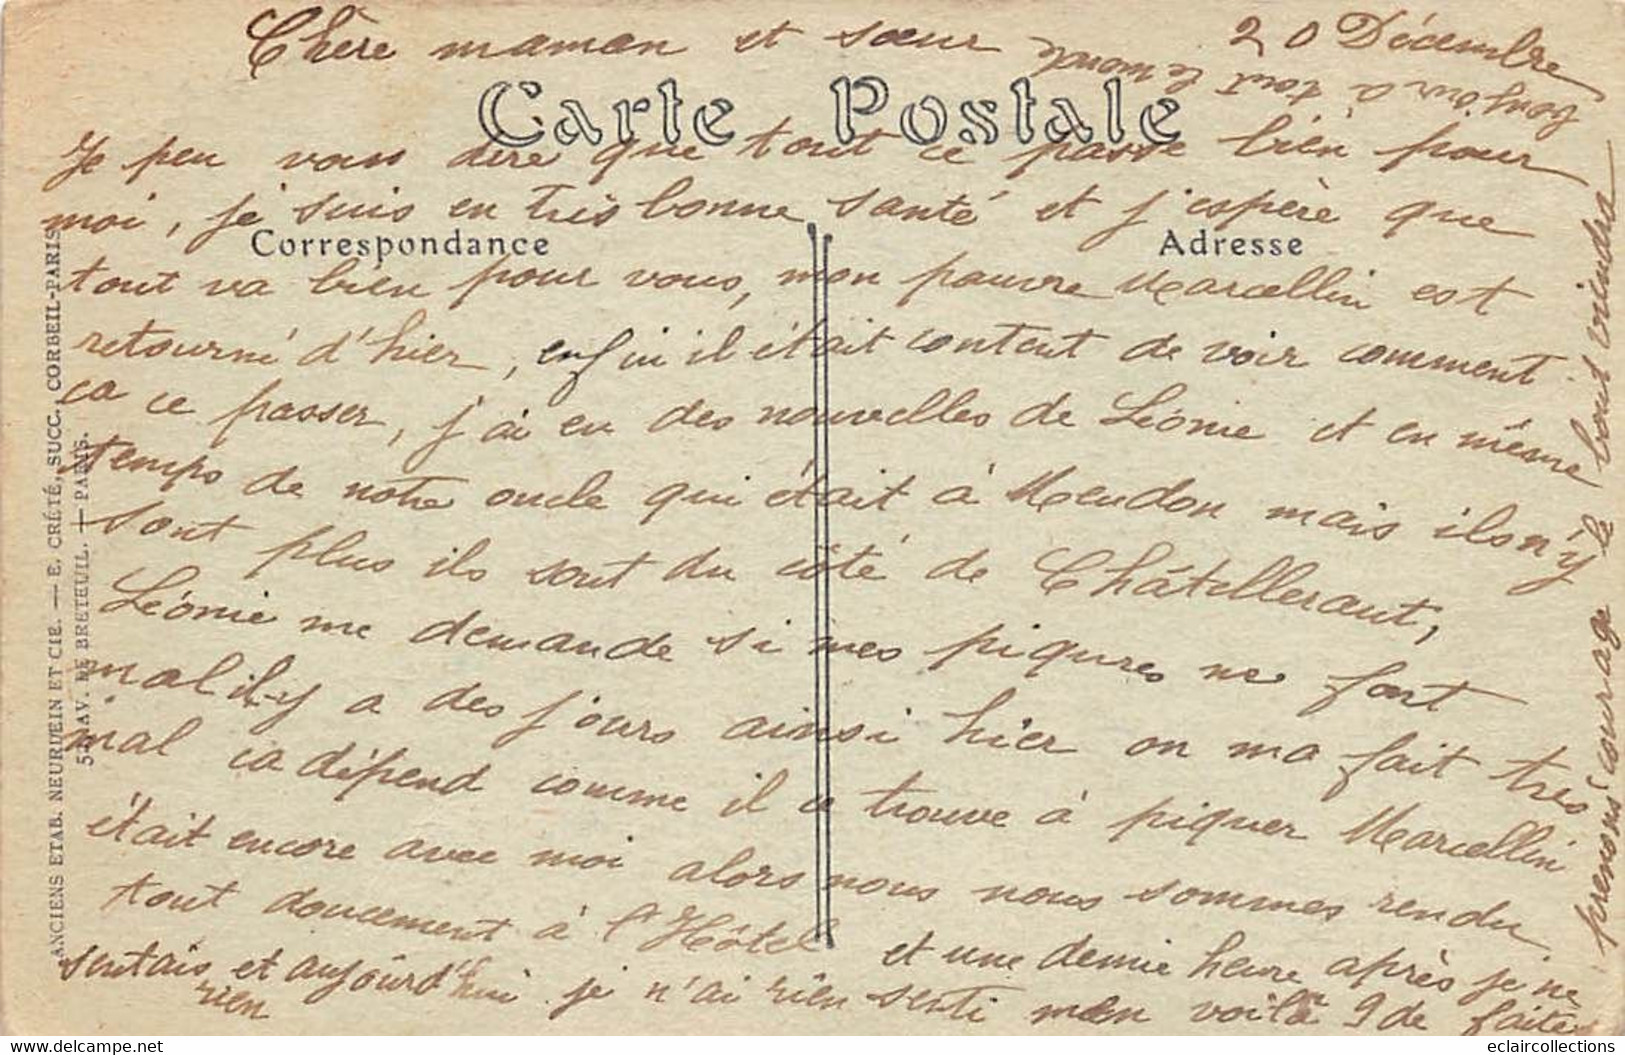 20 Décembre
Chère maman et sœur
bonjour à tout le monde
Carte Postale
Je peu vous dire que tout ce passe bien pour
moi, je suis en très bonne santé et j'espère que
Correspondance
Adresse
tout va bien pour vous, mon pauvre Marcellin est
retourné d'hier, enfin il était content de voir comment
ca ce passer, j'ai eu des nouvelles de Léonie et en même
temps de notre oncle qui était à Meudon mais ils n'y
sont plus ils sont du côté de Châtelleraut,
Léonie me demande si mes piqures ne font
mal il y a des jours ainsi hier on ma fait très
mal ca dépend comme il ce trouve à piquer Marcellin
était encore avec moi alors nous nous sommes rendu
tout doucement à l'Hôtel et une demie heure après je ne
sentais rien et aujourd'hui je n'ai rien senti voilà 9 de faites
prenons courage le bout viendra
ANCIENS ETAB. NEURDEIN ET CIE. — E. CRÉTÉ, SUCC., CORBEIL-PARIS
52, AV. DE BRETEUIL. — PARIS.
eclaircollections
www.delcampe.net